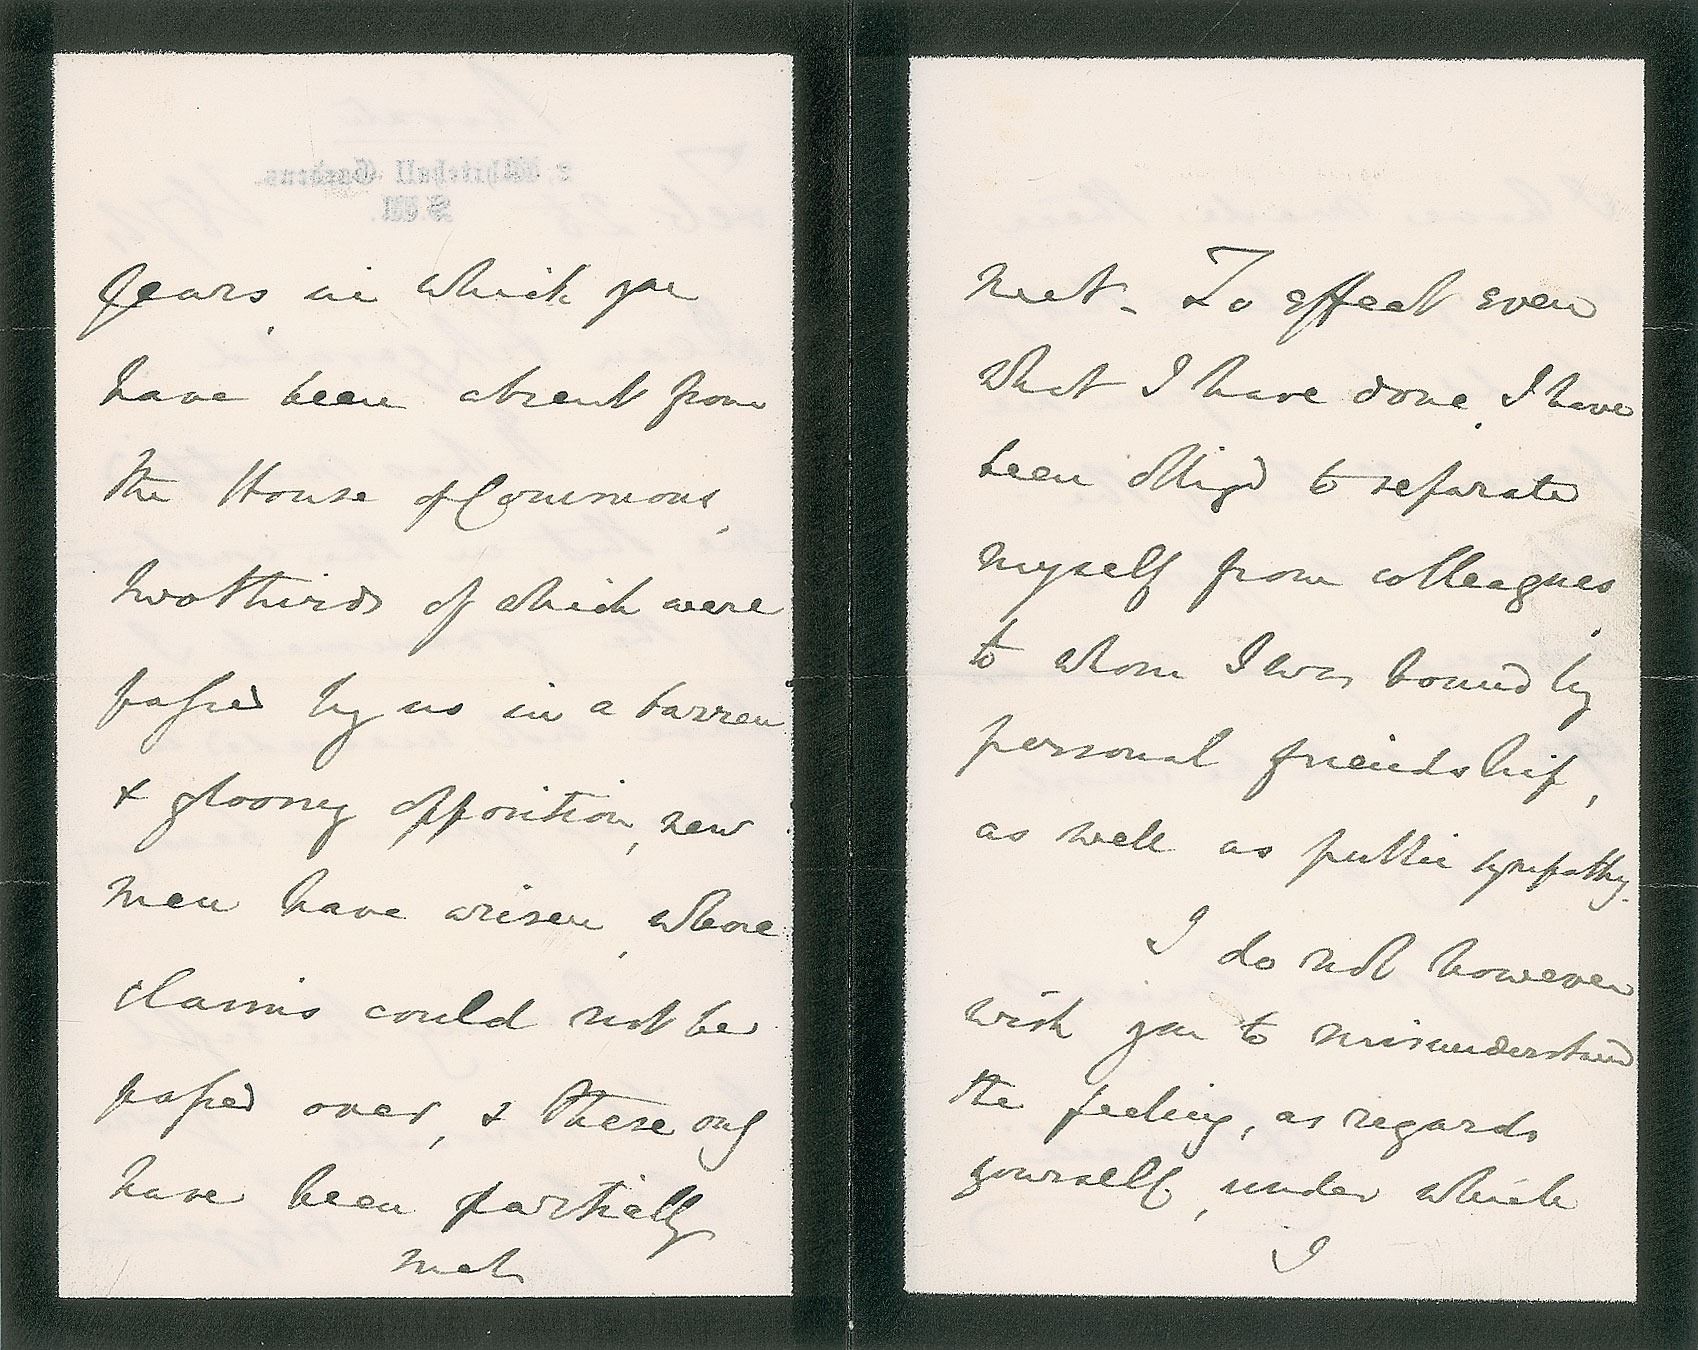 2, Whitehall Gardens.
S.W.
years, in which you
have been absent from
the House of Commons,
two thirds of which were
passed by us in a barren
& gloomy opposition, new
men have arisen, whose
claims could not be
passed over, & these only
have been partially
met.
met. To effect even
what I have done, I have
been oblig'd to separate
myself from colleagues,
to whom I was bound by
personal friendship,
as well as public sympathy.
I do not however
wish you to misunderstand
the feeling, as regards
yourself, under which
I